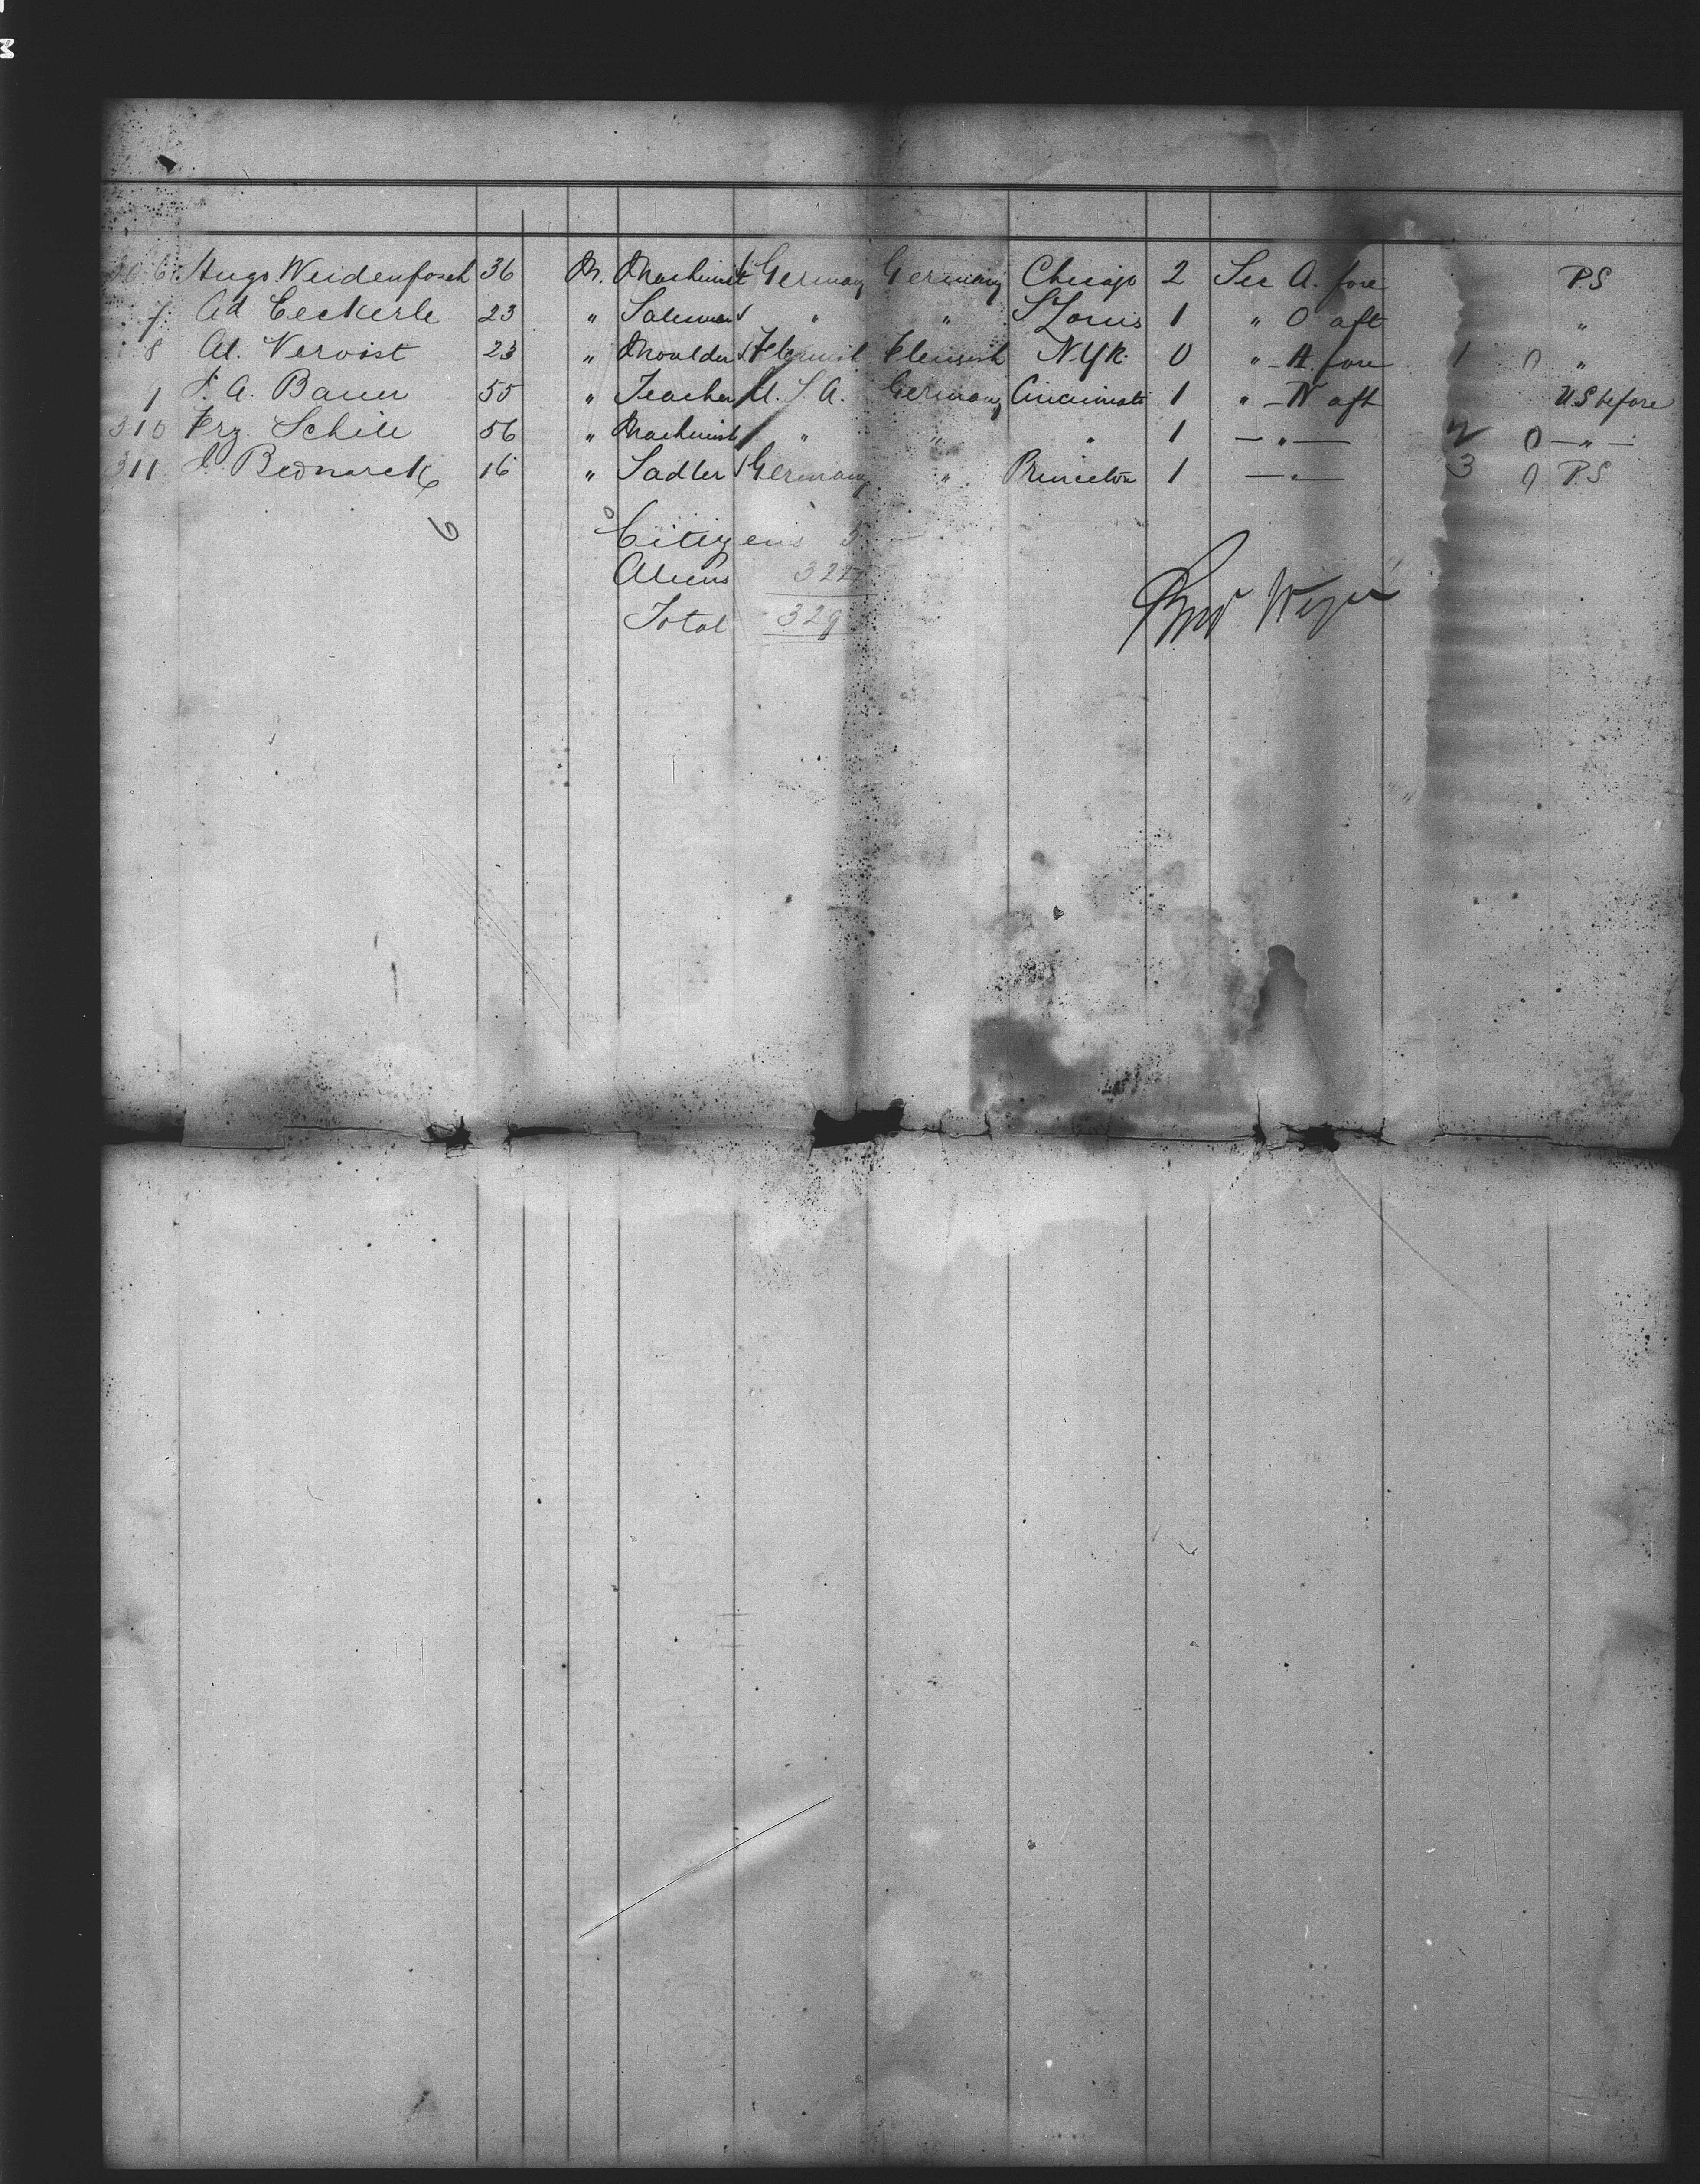 306 Hugo Weidenfosch 36 M. Machinist Germany Germany Chicago 2 Sec A. fore P.S
7 Ad Eeckerle 23 " Salesman " " St Louis 1 " O aft "
8 Ad. Nervist 23 " Moulder Flemish Flemish N.Yk. 0 " H. fore 1 0 "
9 F. A. Bauer 55 " Teacher U.S.A. Germany Cincinnati 1 " N aft U.S before
310 Frz. Schill 56 " Machinist " " " 1 — " — 2 0 — " —
311 J. Bednarek 16 " Sadler Germany " Princeton 1 — " — 3 0 P.S
6
Citizens 5
Aliens 324
Total 329